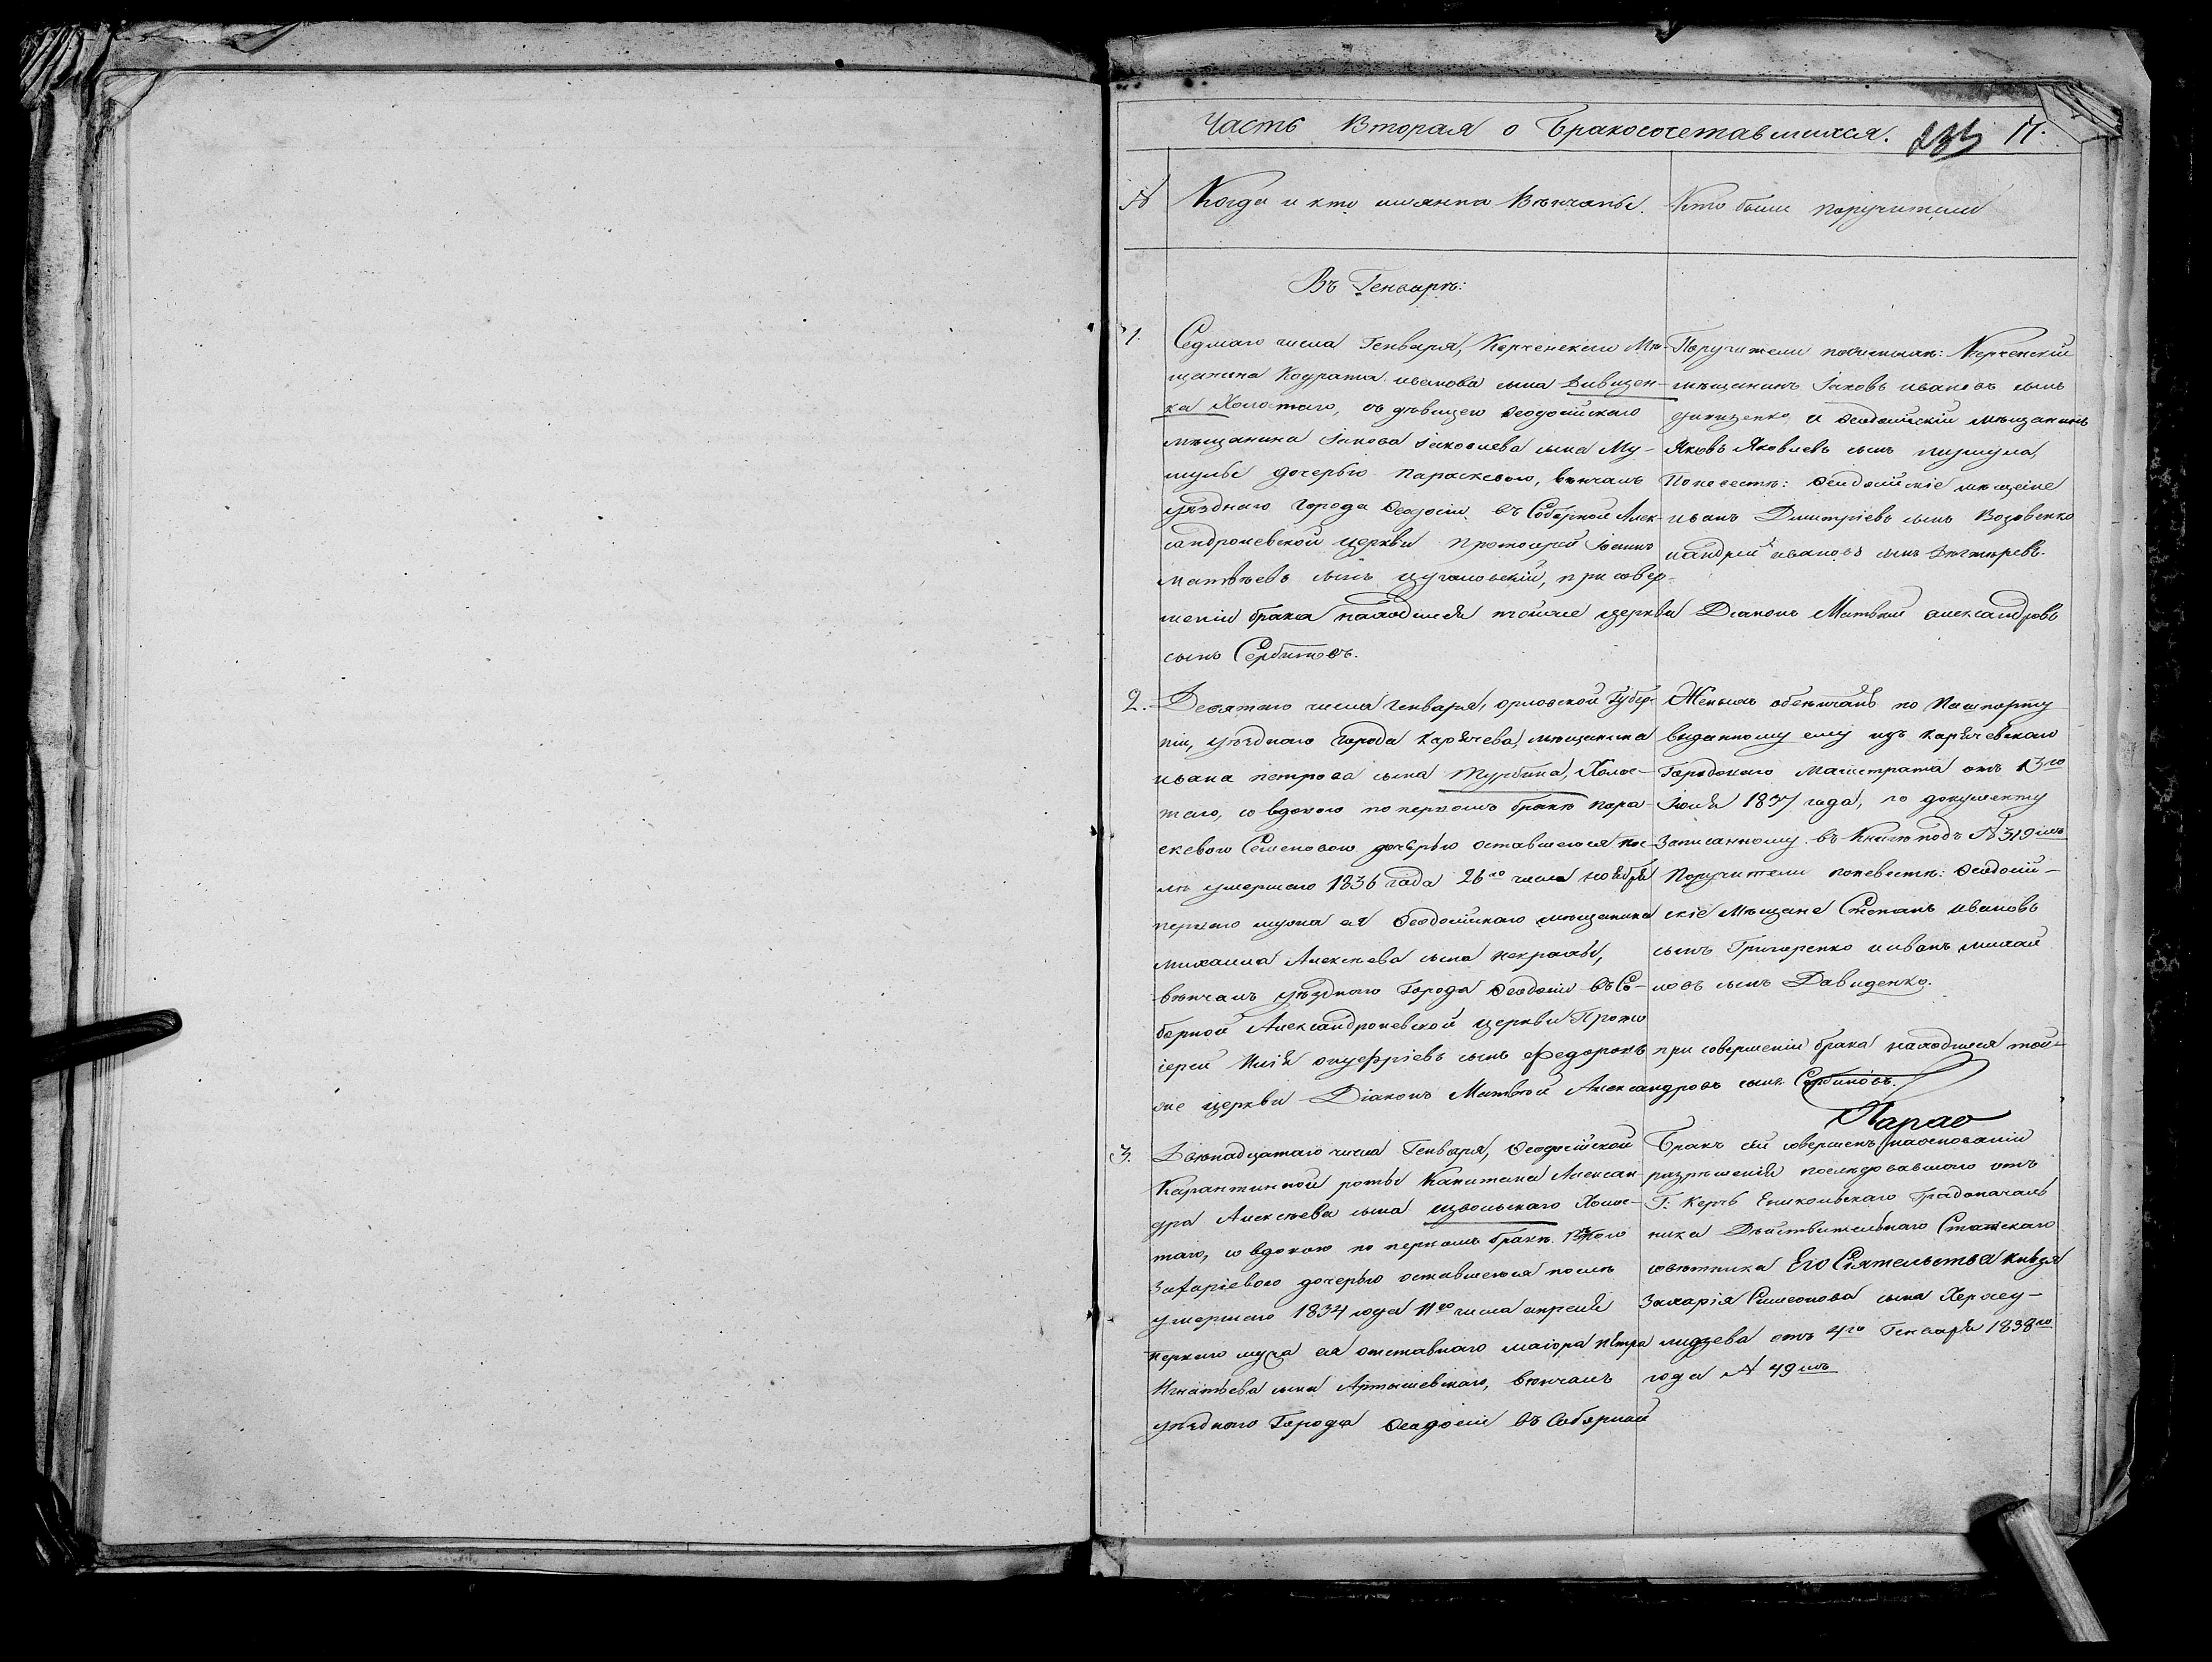 Часть Вторая о Бракосочетавшихся. 17.
№ Когда и кто имянно Венчаны. Кто были поручители
Въ Генваре:
1. Седмаго числа Генваря, Керченскаго Мѣ-
щанина Кодрата иванова сына Дивицен-
ка Холостаго, съ дѣвицею Ѳеодосійскаго
мѣщанина Іакова Іаковлева сына
дочерью Параскевою, вѣнчалъ
уѣзднаго Города Ѳеодосіи въ Соборной Алек-
сандроневской церкви Протоіерей Іоаннъ
Матвѣевъ сынъ, при совер-
шеніи брака находился тойже церкви Діаконъ Матвѣй александровъ
сынъ Сербиновъ.
Поручители: Керченскій
мѣщанинъ Іаковъ ивановъ сынъ
и Ѳеодосійскій мѣщанинъ
Яковъ Яковлевъ сынъ
Поневестѣ: Ѳеодосійскіе
иванъ Дмитріевъ сынъ
иандрей ивановъ сынъ
2. Десятаго числа Генваря, орловской Губер-
ніи, уѣзднаго Города Карячева, мѣщанина
ивана петрова сына Турбина, Холос-
таго, со вдовою по первомъ бракѣ пара-
скевою Семеновою дочерью оставшеюся пос-
лѣ умершаго 1836 года 26го числа ноября
перваго мужа ея Ѳеодосійскаго мѣщанина
михаила Алексѣева сына некрасы,
вѣнчалъ уѣзднаго Города Ѳеодосіи въ Со-
борной Александроневской церкви Прото
іерей Илія онуфріевъ сынъ федоровъ при совершеніи брака находился той-
же церкви Діаконъ Матвѣй Александровъ сынъ Сербиновъ.
Женихъ обвѣнчанъ по Пашпорту
выданному ему изъ карячевскаго
Городскаго Магистрата отъ 13го
Іюля 1837 года, по документу
Записанному въ Книге подъ № 319мъ
Поручители поневестѣ: Ѳеодосій-
скіе Мѣщане Степанъ ивановъ
сынъ Григоренко и иванъ михай
ловъ сынъ Давиденко.
3. Двѣнадцатаго числа Генваря, Ѳеодосійской
Карантинной роты Капитана Алексан-
дра Алексѣева сына Холос-
таго, со вдовою по первомъ бракѣ
Захаріевою дочерью оставшеюся послѣ
умершаго 1834 года 11го числа апреля
перваго мужа ея отставнаго маіора Петра
Игнатьева сына Артышевскаго, вѣнчалъ
уѣзднаго Города Ѳеодосіи въ Соборной
Бракъ сей совершенъ наоснованіи
разрѣшенія послѣдовавшаго отъ
Г: Керчь Еникольскаго Градоначаль
ника Дѣйствительнаго Статскаго
совѣтника Его Сіятельства князя
Захарія Симеонова сына Херхеу-
лидзева отъ 4го Генваря 1838го
года № 49мъ